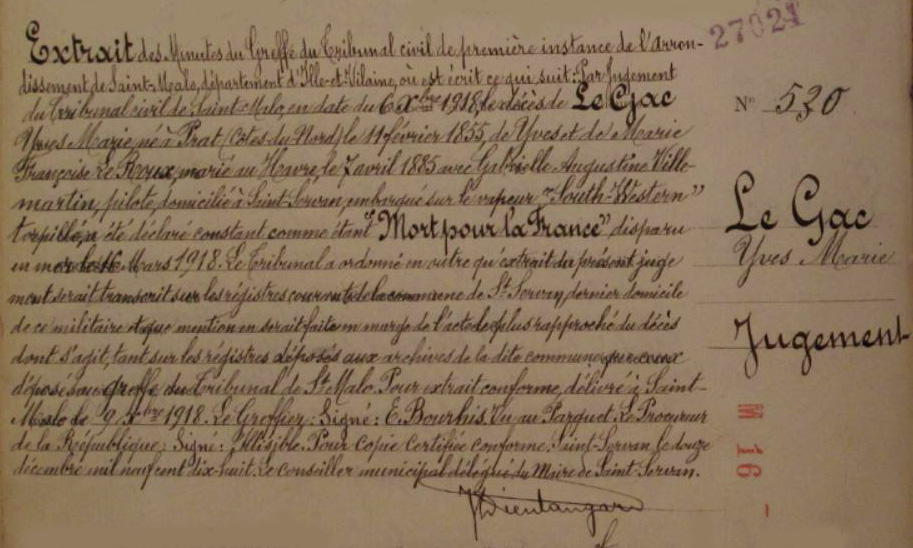 27021
Extrait des Minutes du Greffe du Tribunal civil de première instance de l'Arron-
dissement de Saint-Malo, département d'Ille-et-Vilaine, où est écrit ce qui suit: Par Jugement
du Tribunal civil de Saint-Malo, en date du 6 Xbre 1918, le décès de Le Gac
Yves Marie né à Prat (Côtes du Nord) le 11 février 1855, de Yves et de Marie
Françoise Le Roux, marié au Havre, le 7 avril 1885 avec Gabrielle Augustine Ville-
martin, pilote, domicilié à Saint-Servan, embarqué sur le vapeur "South-Western"
torpillé, a été déclaré constant comme étant "Mort pour la France" disparu
en mer le 16 Mars 1918. Le Tribunal a ordonné en outre qu'extrait du présent juge
ment serait transcrit sur les régistres courants de la commune de St Servan, dernier domicile
de ce militaire et que mention en serait faite en marge de l'acte le plus rapproché du décès
dont s'agit, tant sur les régistres déposés aux archives de la dite commune que ceux
déposés au greffe du Tribunal de St Malo. Pour extrait conforme, délivré à Saint-
Malo le 9 Xbre 1918. Le Greffier: Signé: E. Bourhis. Vu au Parquet: Le Procureur
de la République: Signé: Illisible. Pour Copie Certifiée Conforme. Saint-Servan, le douze
décembre mil neuf cent dix-huit. Le Conseiller municipal délégué du Maire de Saint Servan.
N° 530
Le Gac
Yves Marie
Jugement
M 16 -